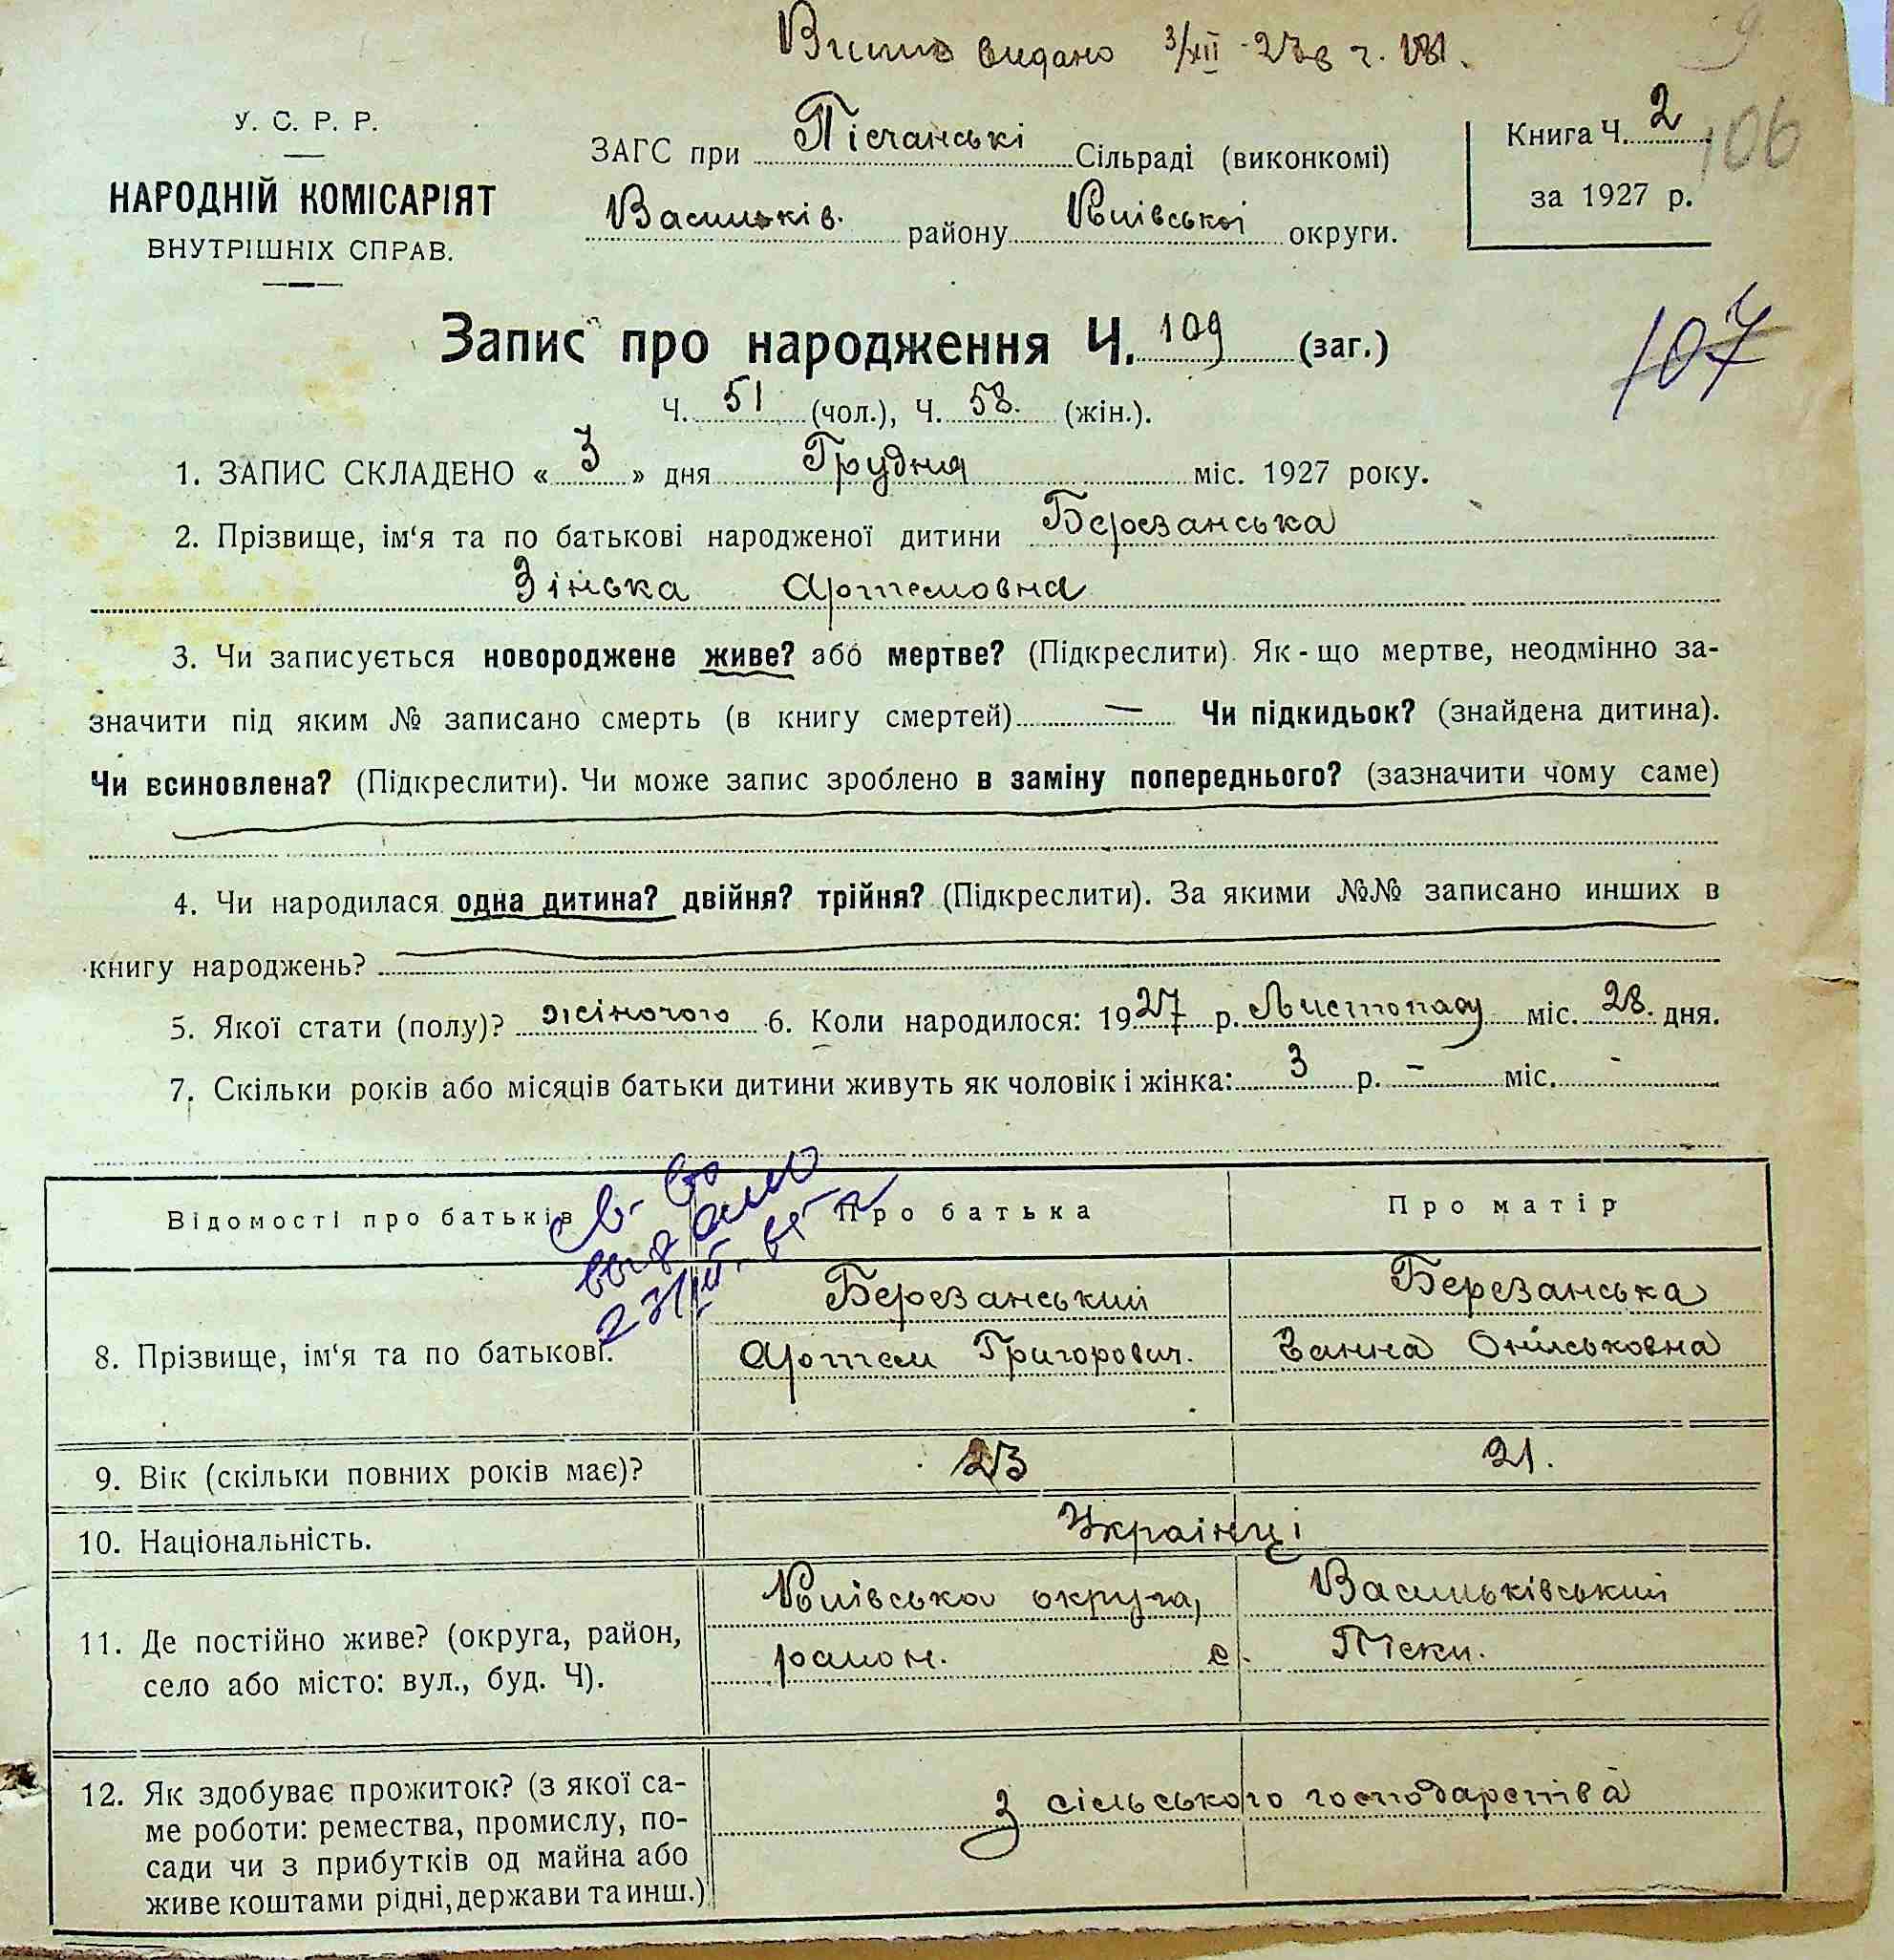 видано 3/XII - 27 в ч. 181.
У. С. Р. Р.
НАРОДНІЙ КОМІСАРІЯТ
ВНУТРІШНІХ СПРАВ.
ЗАГС при Пісчанські Сільраді (виконкомі)
Васильків. району Київської округи.
Книга Ч. 2
за 1927 р.
106
107
Запис про народження Ч. 109 (заг.)
Ч. 51 (чол.), Ч. 58. (жін.).
1. ЗАПИС СКЛАДЕНО « 3 » дня Грудня міс. 1927 року.
2. Прізвище, ім‘я та по батькові народженої дитини Березанська
Зінька Артемовна
3. Чи записується новороджене живе? або мертве? (Підкреслити). Як-що мертве, неодмінно за-
значити під яким № записано смерть (в книгу смертей) — Чи підкидьок? (знайдена дитина).
Чи всиновлена? (Підкреслити). Чи може запис зроблено в заміну попереднього? (зазначити чому саме)
4. Чи народилася одна дитина? двійня? трійня? (Підкреслити). За якими №№ записано инших в
книгу народжень?
5. Якої стати (полу)? жіночого 6. Коли народилося: 1927 р. Листопаду міс. 28. дня.
7. Скільки років або місяців батьки дитини живуть як чоловік і жінка: 3 р. – міс. -
Відомості про батьків Про батька Про матір
8. Прізвище, ім‘я та по батькові.
Березанський
Артем Григорович.
Березанська
Ганна
9. Вік (скільки повних років має)? 23 21.
10. Національність. Українці
11. Де постійно живе? (округа, район,
село або місто: вул., буд. Ч).
Київська округа, Васильківський
район. с. Піски.
12. Як здобуває прожиток? (з якої са-
ме роботи: ремества, промислу, по-
сади чи з прибутків од майна або
живе коштами рідні, держави та инш.)
З сільського господарства